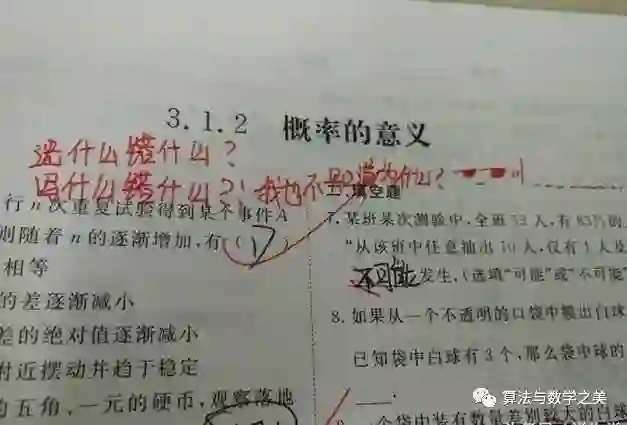 3.1.2 概率的意义
选什么错什么?
因什么错什么?! 我也不知道为什么?
行n次重复试验得到某个事件A
则随着n的逐渐增加,有( D )
相等
的差逐渐减小
差的绝对值逐渐减小
附近摆动并趋于稳定
的五角、一元的硬币,观察落地
二、填空题
7.某班某次测验中,全班53人,有83%的
“从该班中任意抽出10人,仅有1人及
不可能发生.(选填“可能”或“不可能”
8.如果从一个不透明的口袋中摸出白球
已知袋中白球有3个,那么袋中球的
一个袋中装有数量差别较大的白球
算法与数学之美